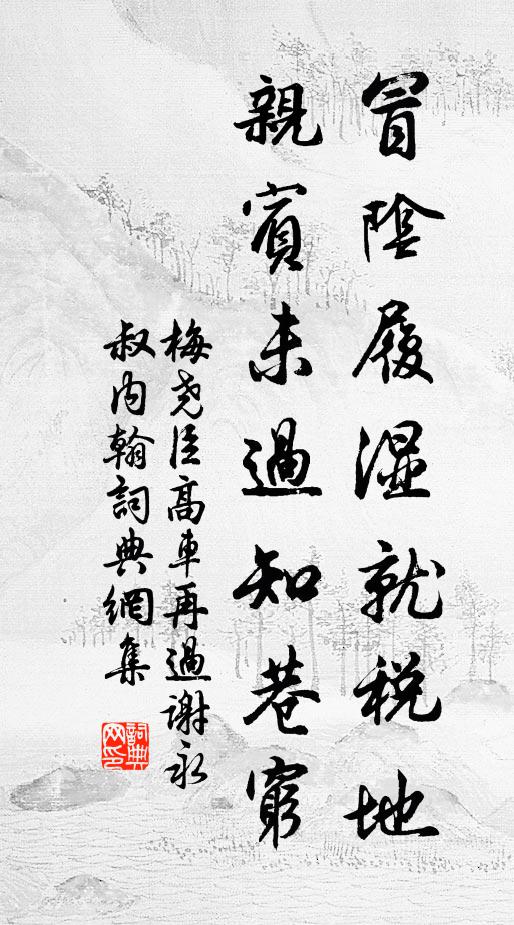 冒陰履濕就税地
親賓未過知巷窮
梅尧臣高車再過謝永
叔内翰詞典網集
詞典网印